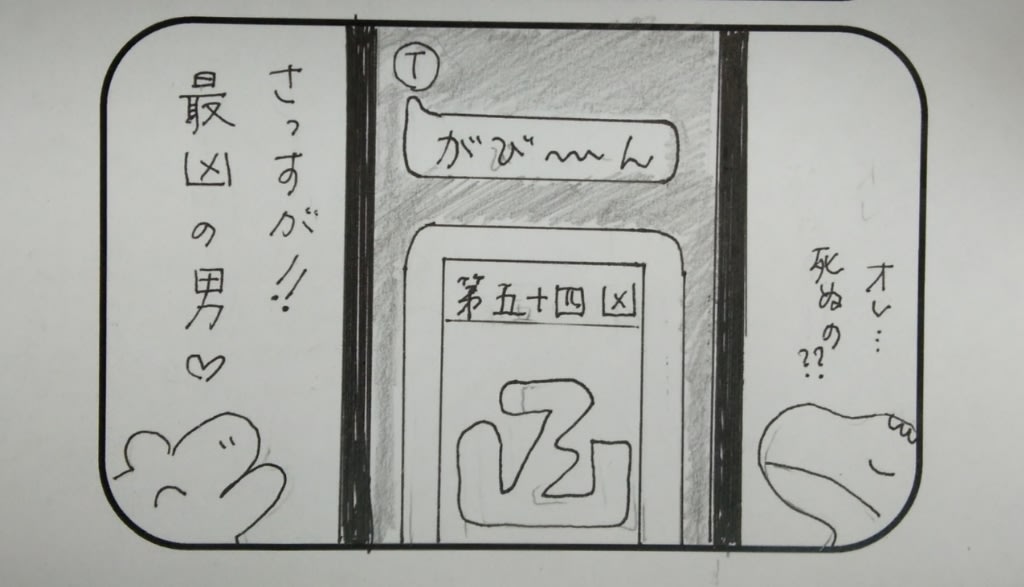 オレ…
死ぬの??
T
がび〜〜ん
第五十四 凶
さっすが!!
最凶の男♡